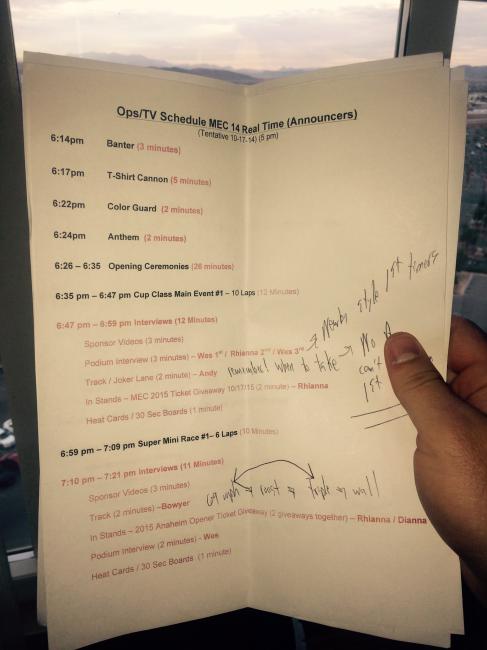 Ops/TV Schedule MEC 14 Real Time (Announcers)
(Tentative 10-17-14) (5 pm)
6:14pm Banter (3 minutes)
6:17pm T-Shirt Cannon (5 minutes)
6:22pm Color Guard (2 minutes)
6:24pm Anthem (2 minutes)
6:26 – 6:35 Opening Ceremonies (26 minutes)
6:35 pm – 6:47 pm Cup Class Main Event #1 – 10 Laps (12 Minutes)
6:47 pm – 6:59 pm Interviews (12 Minutes)
Sponsor Videos (3 minutes)
Podium Interview (3 minutes) – Wes 1st / Rhianna 2nd / Wes 3rd
style 1st timers
Track / Joker Lane (2 minutes) – Andy
remember when to take → No
can't
1st
In Stands – MEC 2015 Ticket Giveaway 10/17/15 (2 minute) – Rhianna
Heat Cards / 30 Sec Boards (1 minute)
6:59 pm – 7:09 pm Super Mini Race #1– 6 Laps (10 Minutes)
7:10 pm – 7:21 pm Interviews (11 Minutes)
Sponsor Videos (3 minutes)
Track (2 minutes) –Bowyer
triple → wall
In Stands – 2015 Anaheim Opener Ticket Giveaway (2 giveaways together) – Rhianna / Dianna
Podium Interview (2 minute) - Wes
Heat Cards / 30 Sec Boards (1 minute)